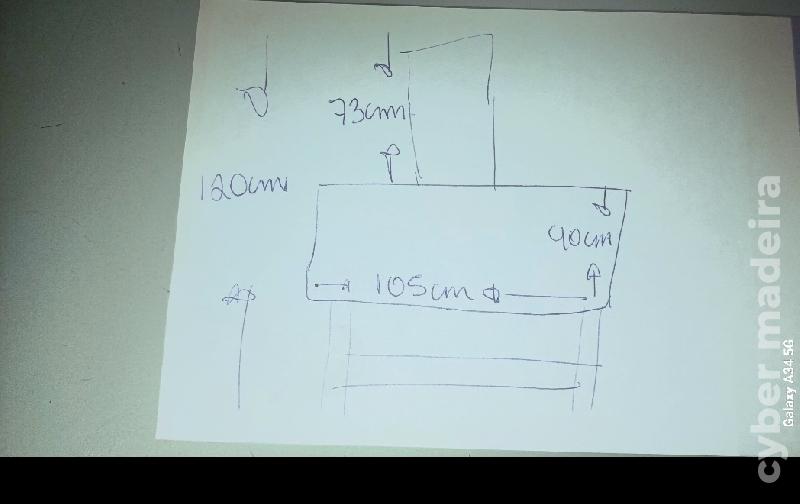 73cm
120cm
40cm
105cm
cyber madeira
Galaxy A34 5G